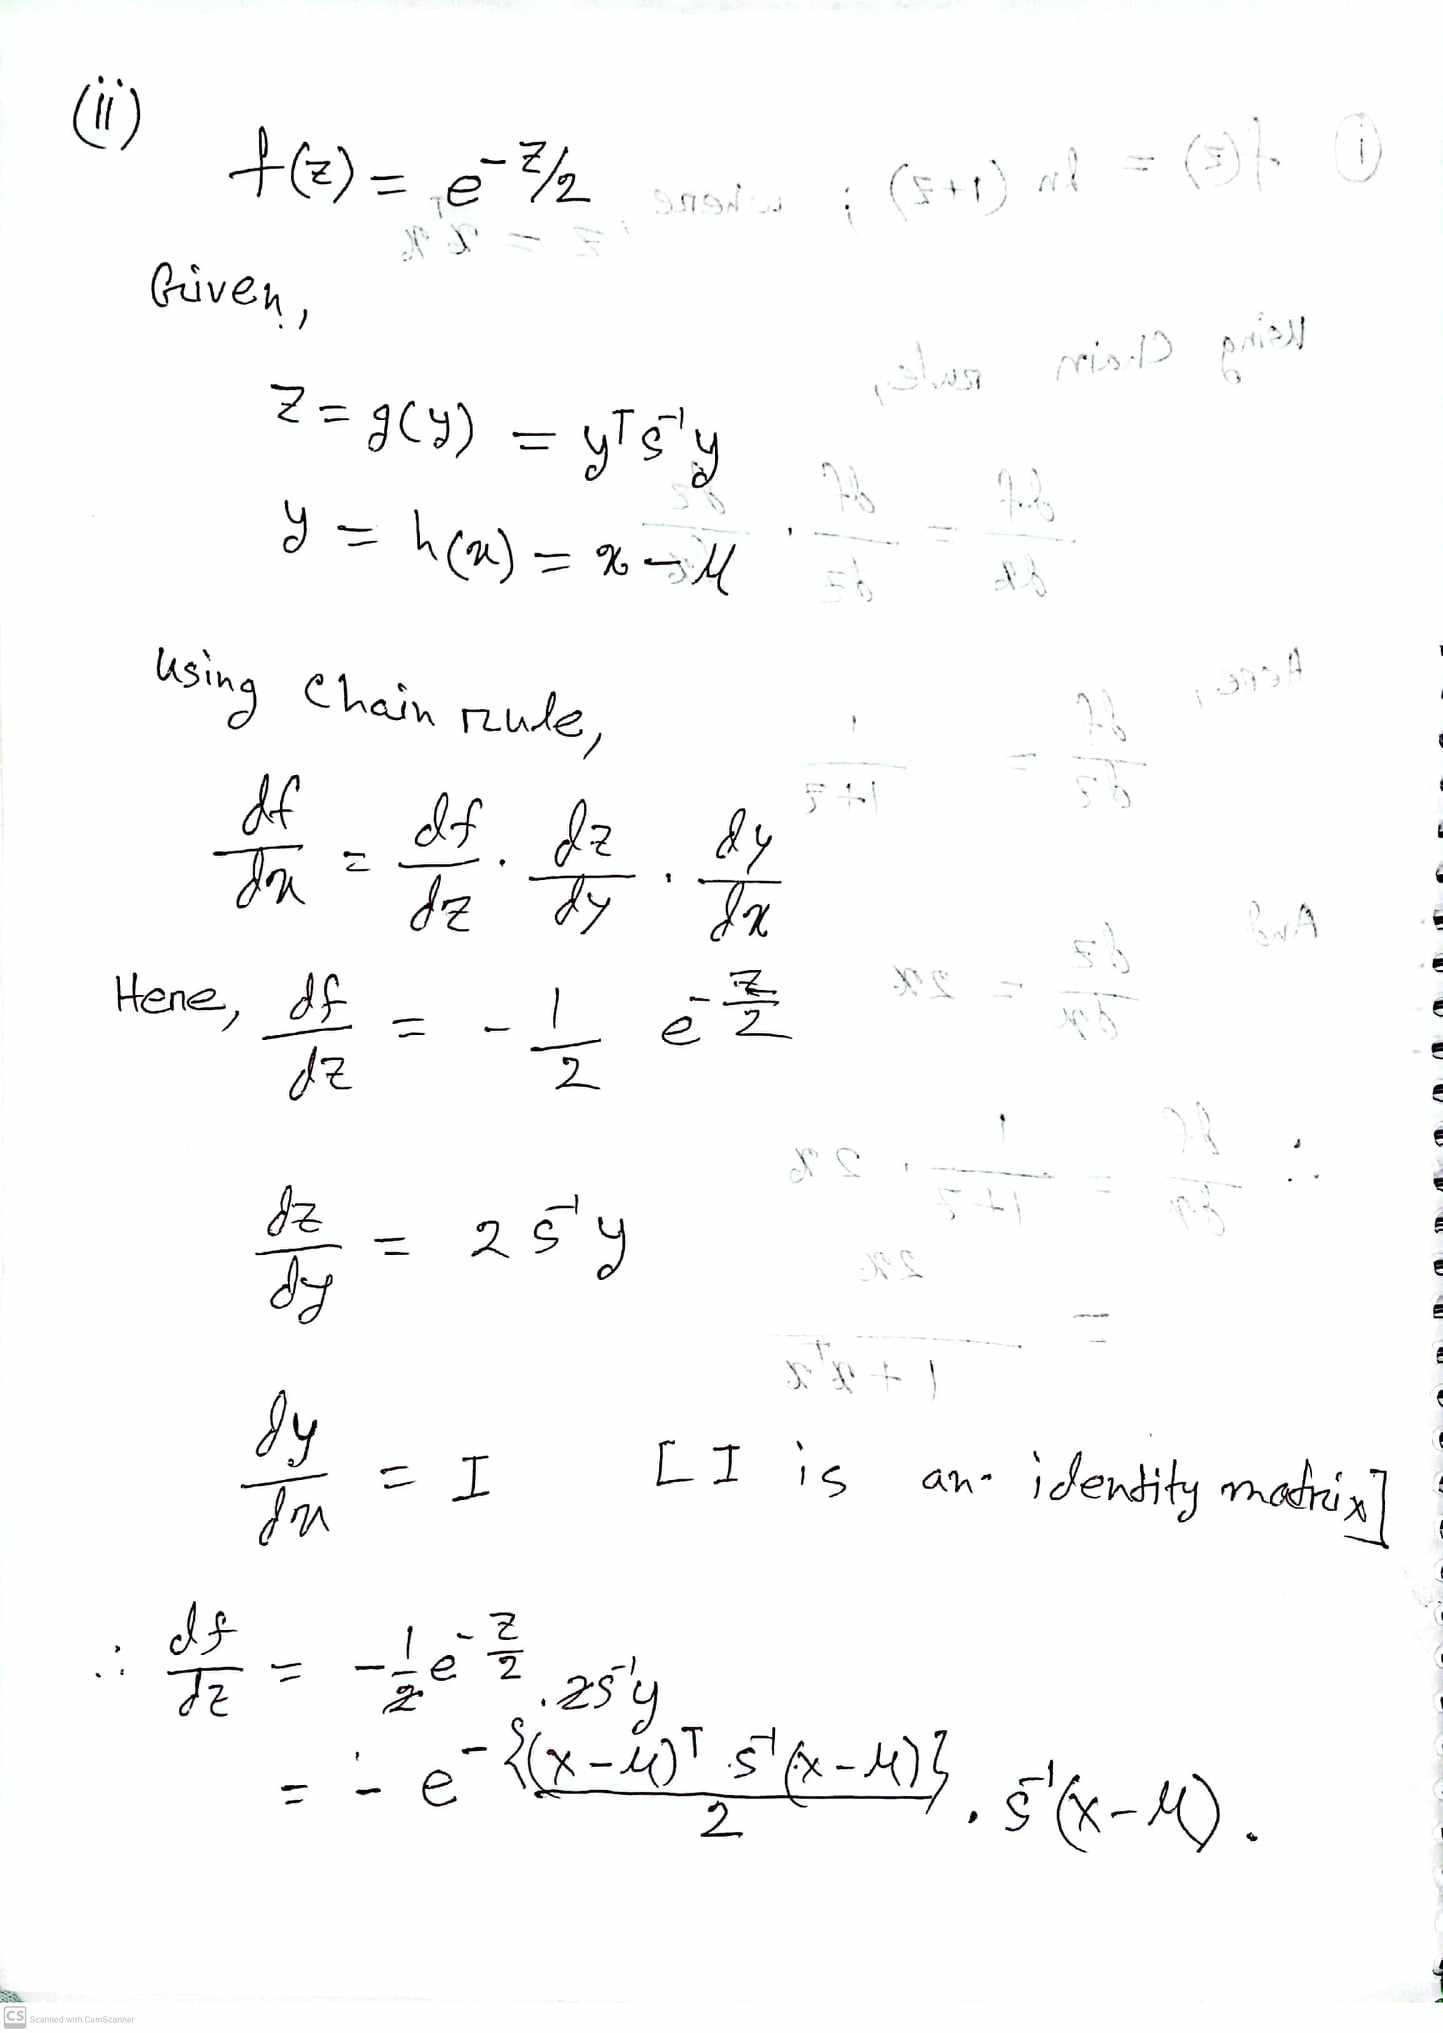 (ii)
f(z) = e^{-z/2}
Given,
z = g(y) = y^T s^{-1} y
y = h(x) = x - μ
Using Chain rule,
df/dx = df/dz · dz/dy · dy/dx
Here, df/dz = - 1/2 e^{-z/2}
dz/dy = 2 s^{-1} y
dy/dx = I [I is an identity matrix]
∴ df/dz = -1/2 e^{-z/2} · 2s^{-1}y
= - e^{-{(x-μ)^T · s^{-1}(x-μ)}/2} · s^{-1}(x-μ).
CS Scanned with CamScanner